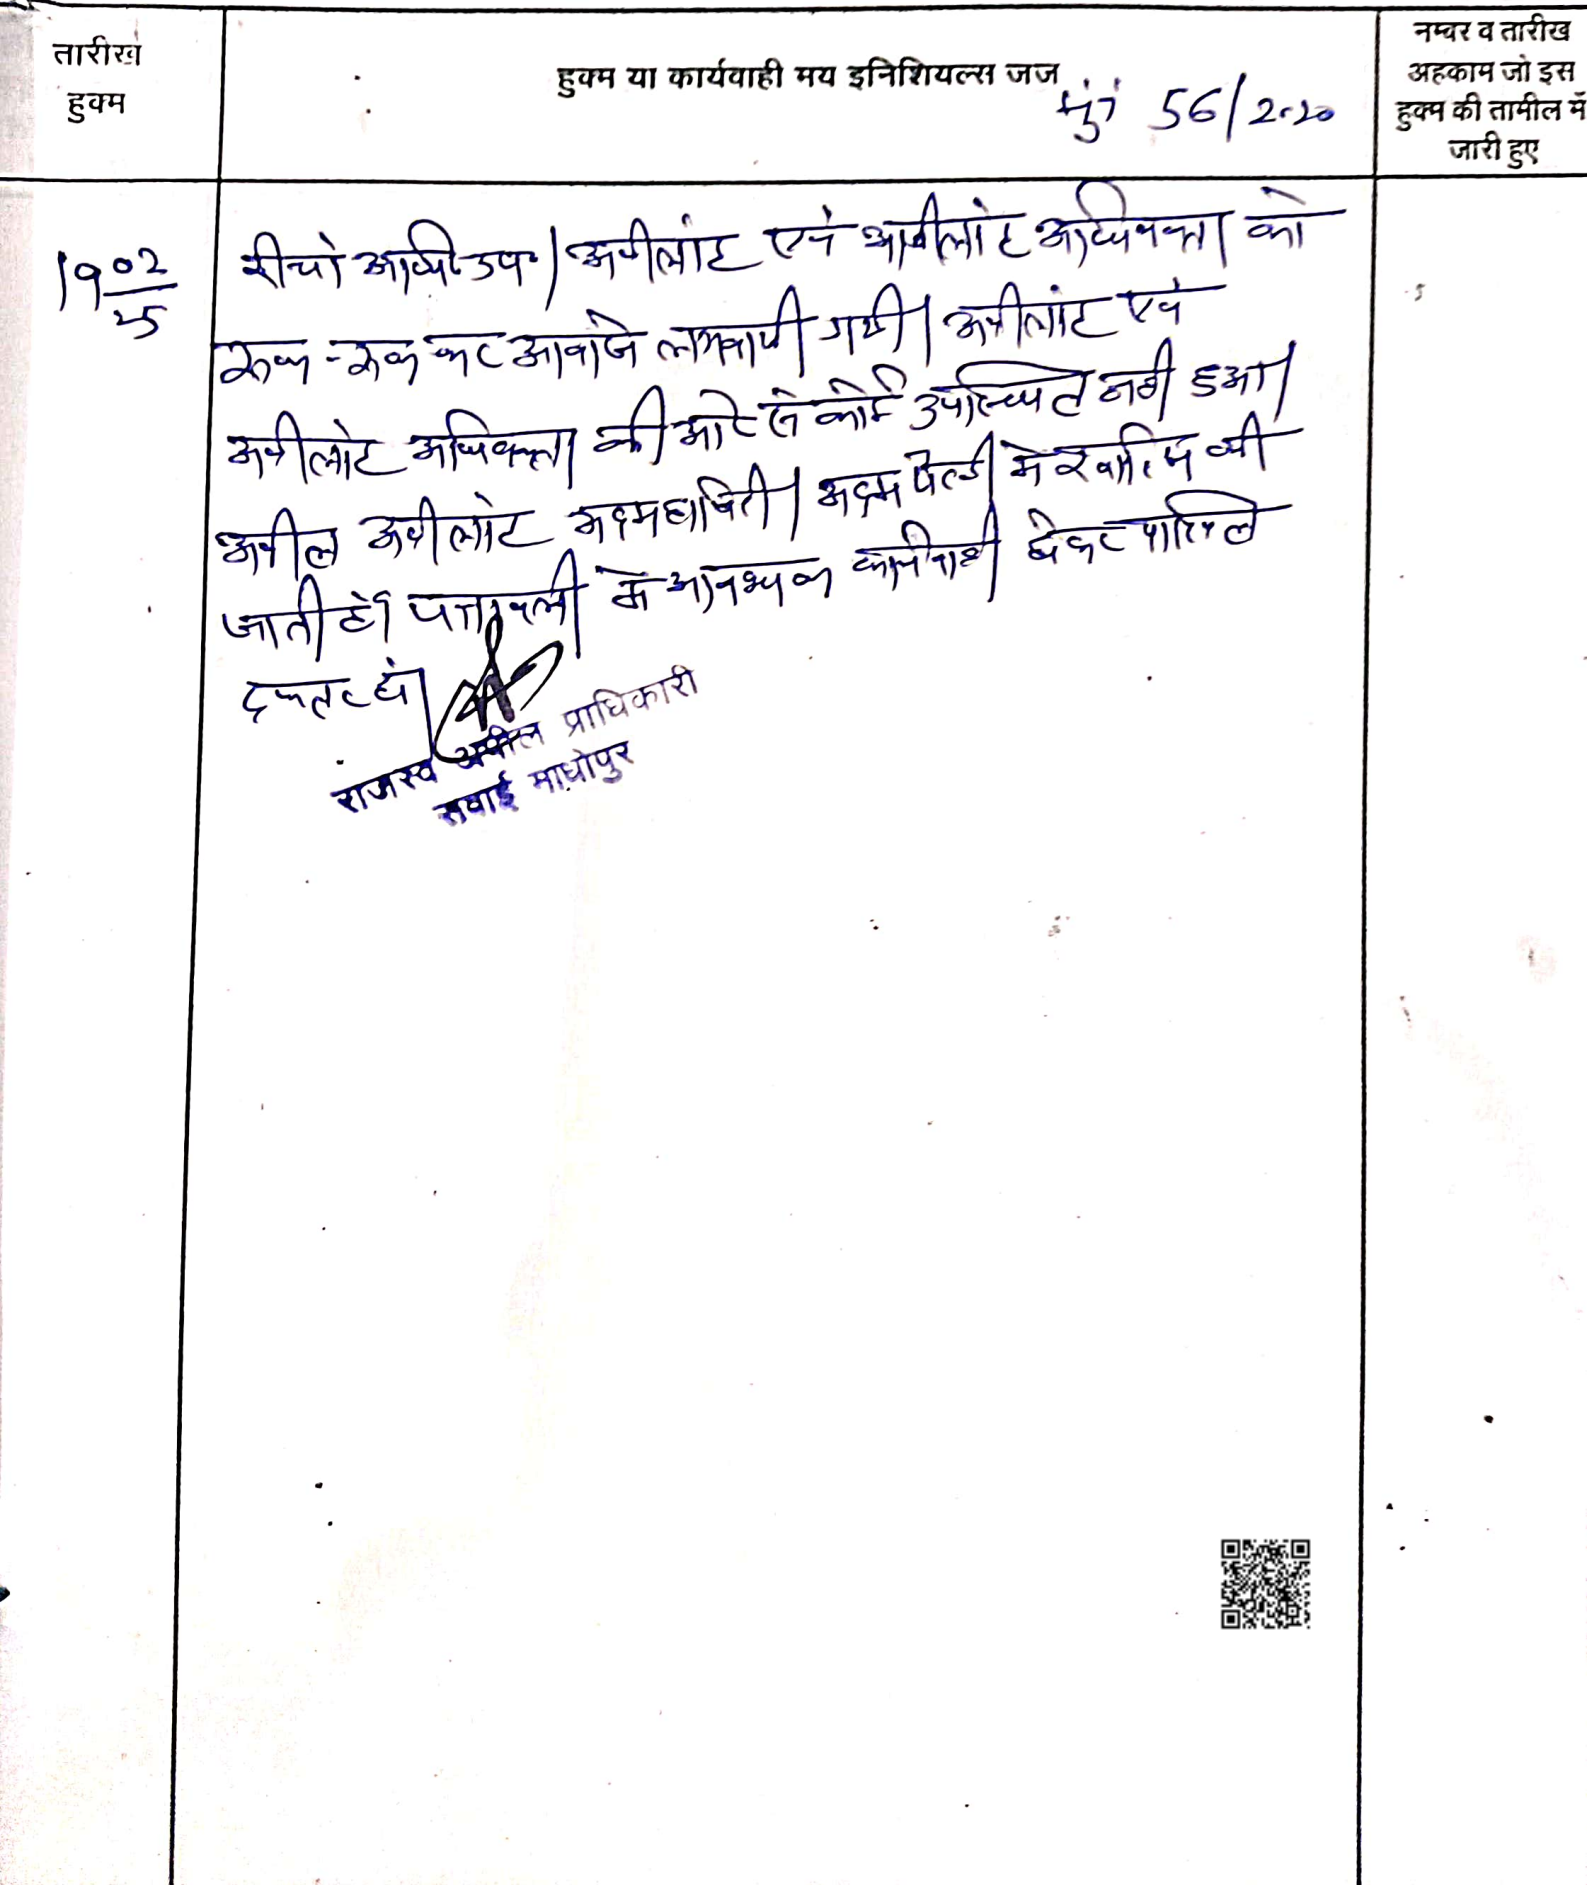 तारीख
हुक्म
हुक्म या कार्यवाही मय इनिशियल्स जज
नम्बर व तारीख
अहकाम जो इस
हुक्म की तामील में
जारी हुए
मु.नं. 56/2020
19 02/25
अपीलांट एवं अपीलांट अधिवक्ता को
रूक-रूक कर आवाजे लगवायी गयी। अपीलांट एवं
अपीलांट अधिवक्ता की ओर से कोई उपस्थित नही हुआ।
अपील अपीलांट अदमहाजिरी। अदम पैरवी मे खारिज की
जाती है। पत्रावली मे आवश्यक कार्यवाही होकर दाखिल
दफ्तर हो।
राजस्व अपील प्राधिकारी
सवाई माधोपुर